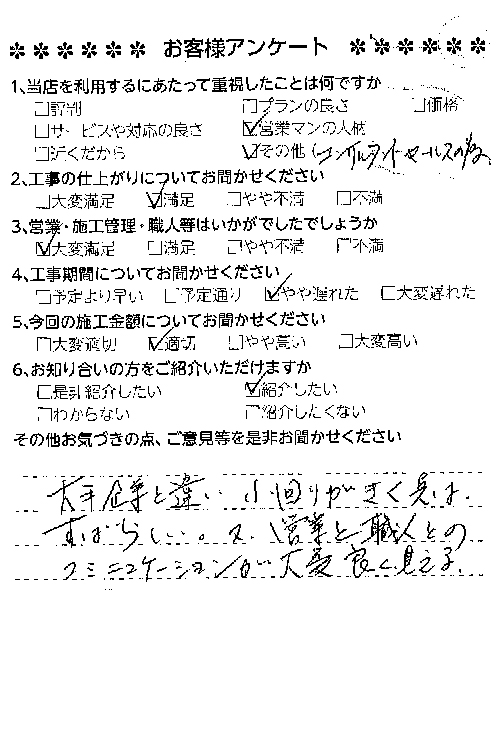 ✻✻✻✻✻✻ お客様アンケート ✻✻✻✻✻✻
1、当店を利用するにあたって重視したことは何ですか
□評判 □プランの良さ □価格
□サービスや対応の良さ ☑営業マンの人柄
□近くだから ☑その他(コンサルタントセールスの為
2、工事の仕上がりについてお聞かせください
□大変満足 ☑満足 □やや不満 □不満
3、営業・施工管理・職人等はいかがでしたでしょうか
☑大変満足 □満足 □やや不満 □不満
4、工事期間についてお聞かせください
□予定より早い □予定通り ☑やや遅れた □大変遅れた
5、今回の施工金額についてお聞かせください
□大変適切 ☑適切 □やや高い □大変高い
6、お知り合いの方をご紹介いただけますか
□是非紹介したい ☑紹介したい
□わからない □紹介したくない
その他お気づきの点、ご意見等を是非お聞かせください
大手企業と違い 小回りがきく点は、
すばらしい。又、営業と職人との
コミニュケーションが大変良く見える。